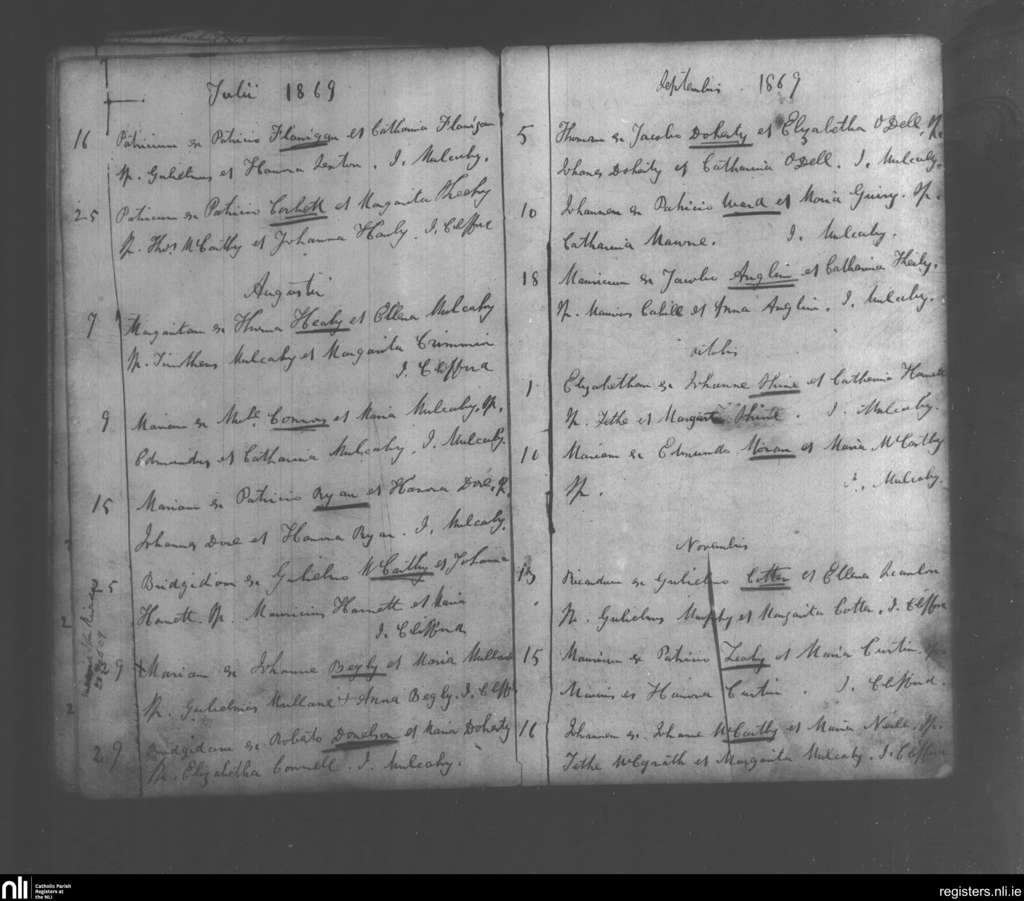 Julii 1869
16 Patricium ex Patricio Flanigan et Cathania Flanigan
Sp. Gulielmus et Honora Sexton. J. Mulcahy.
25 Patricium ex Patricio Corbett et Margarita
Sp. Thos McCarthy et Johanna J. Clifford
Augusti
7 Margaritam ex Thoma Healy et Ellena Mulcahy
Sp. Timotheus Mulcahy et Margarita Crimmin
J. Clifford
9 Mariam ex Connors et Maria Mulcahy, Sp.
Edmundus et Catharina Mulcahy. J. Mulcahy.
15 Mariam ex Patricio Ryan et Honora Dore, Sp.
Johannes Dore et Honora Ryan. J. Mulcahy.
25 Bridgidam ex Gulielmo McCarthy et Johanna
Harnett. Sp. Mauricius Harnett et Maria
J. Clifford
29 Mariam ex Johanne Begly et Maria Mullane
Sp. Gulielmus Mullane + Anna Begly. J. Cliff
29 Bridgidam ex Roberto Donelson et Maria Doherty
Sp. Elizabetha Connell. J. Mulcahy.
Septembris 1869
5 Thomam ex Jacobo Doherty et Elizabetha O'Dell, Sp.
Johanes Doherty et Catharina O'Dell. J. Mulcahy.
10 Johannem ex Patricio Ward et Maria Guiry. Sp.
Catharina J. Mulcahy.
18 Mauricium ex Jacobo Anglin et Catharina Healy.
Sp. Maurius Cahill et Anna Anglin. J. Mulcahy.
ctobis
1 Elizabetham ex Johanne Shine et Catharina Harnett
Sp. et Margarita Shine. J. Mulcahy.
Mariam ex Edmundo Moran et Maria McCarthy
Sp. J. Mulcahy.
Novembris
13 Ricardum ex Gulielmo Cotter et Ellena Scanlon
Sp. Gulielmus Murphy et Margarita Cotter. J. Clifford
15 Mauricium ex Patricio Leahy et Maria Curtin. Sp.
et Honora Curtin. J. Clifford.
16 Johannem ex Johanne McCarthy et Maria Neill. Sp.
McGrath et Margarita Mulcahy. J. Clifford
nli Catholic Parish
Registers at
the NLI
registers.nli.ie